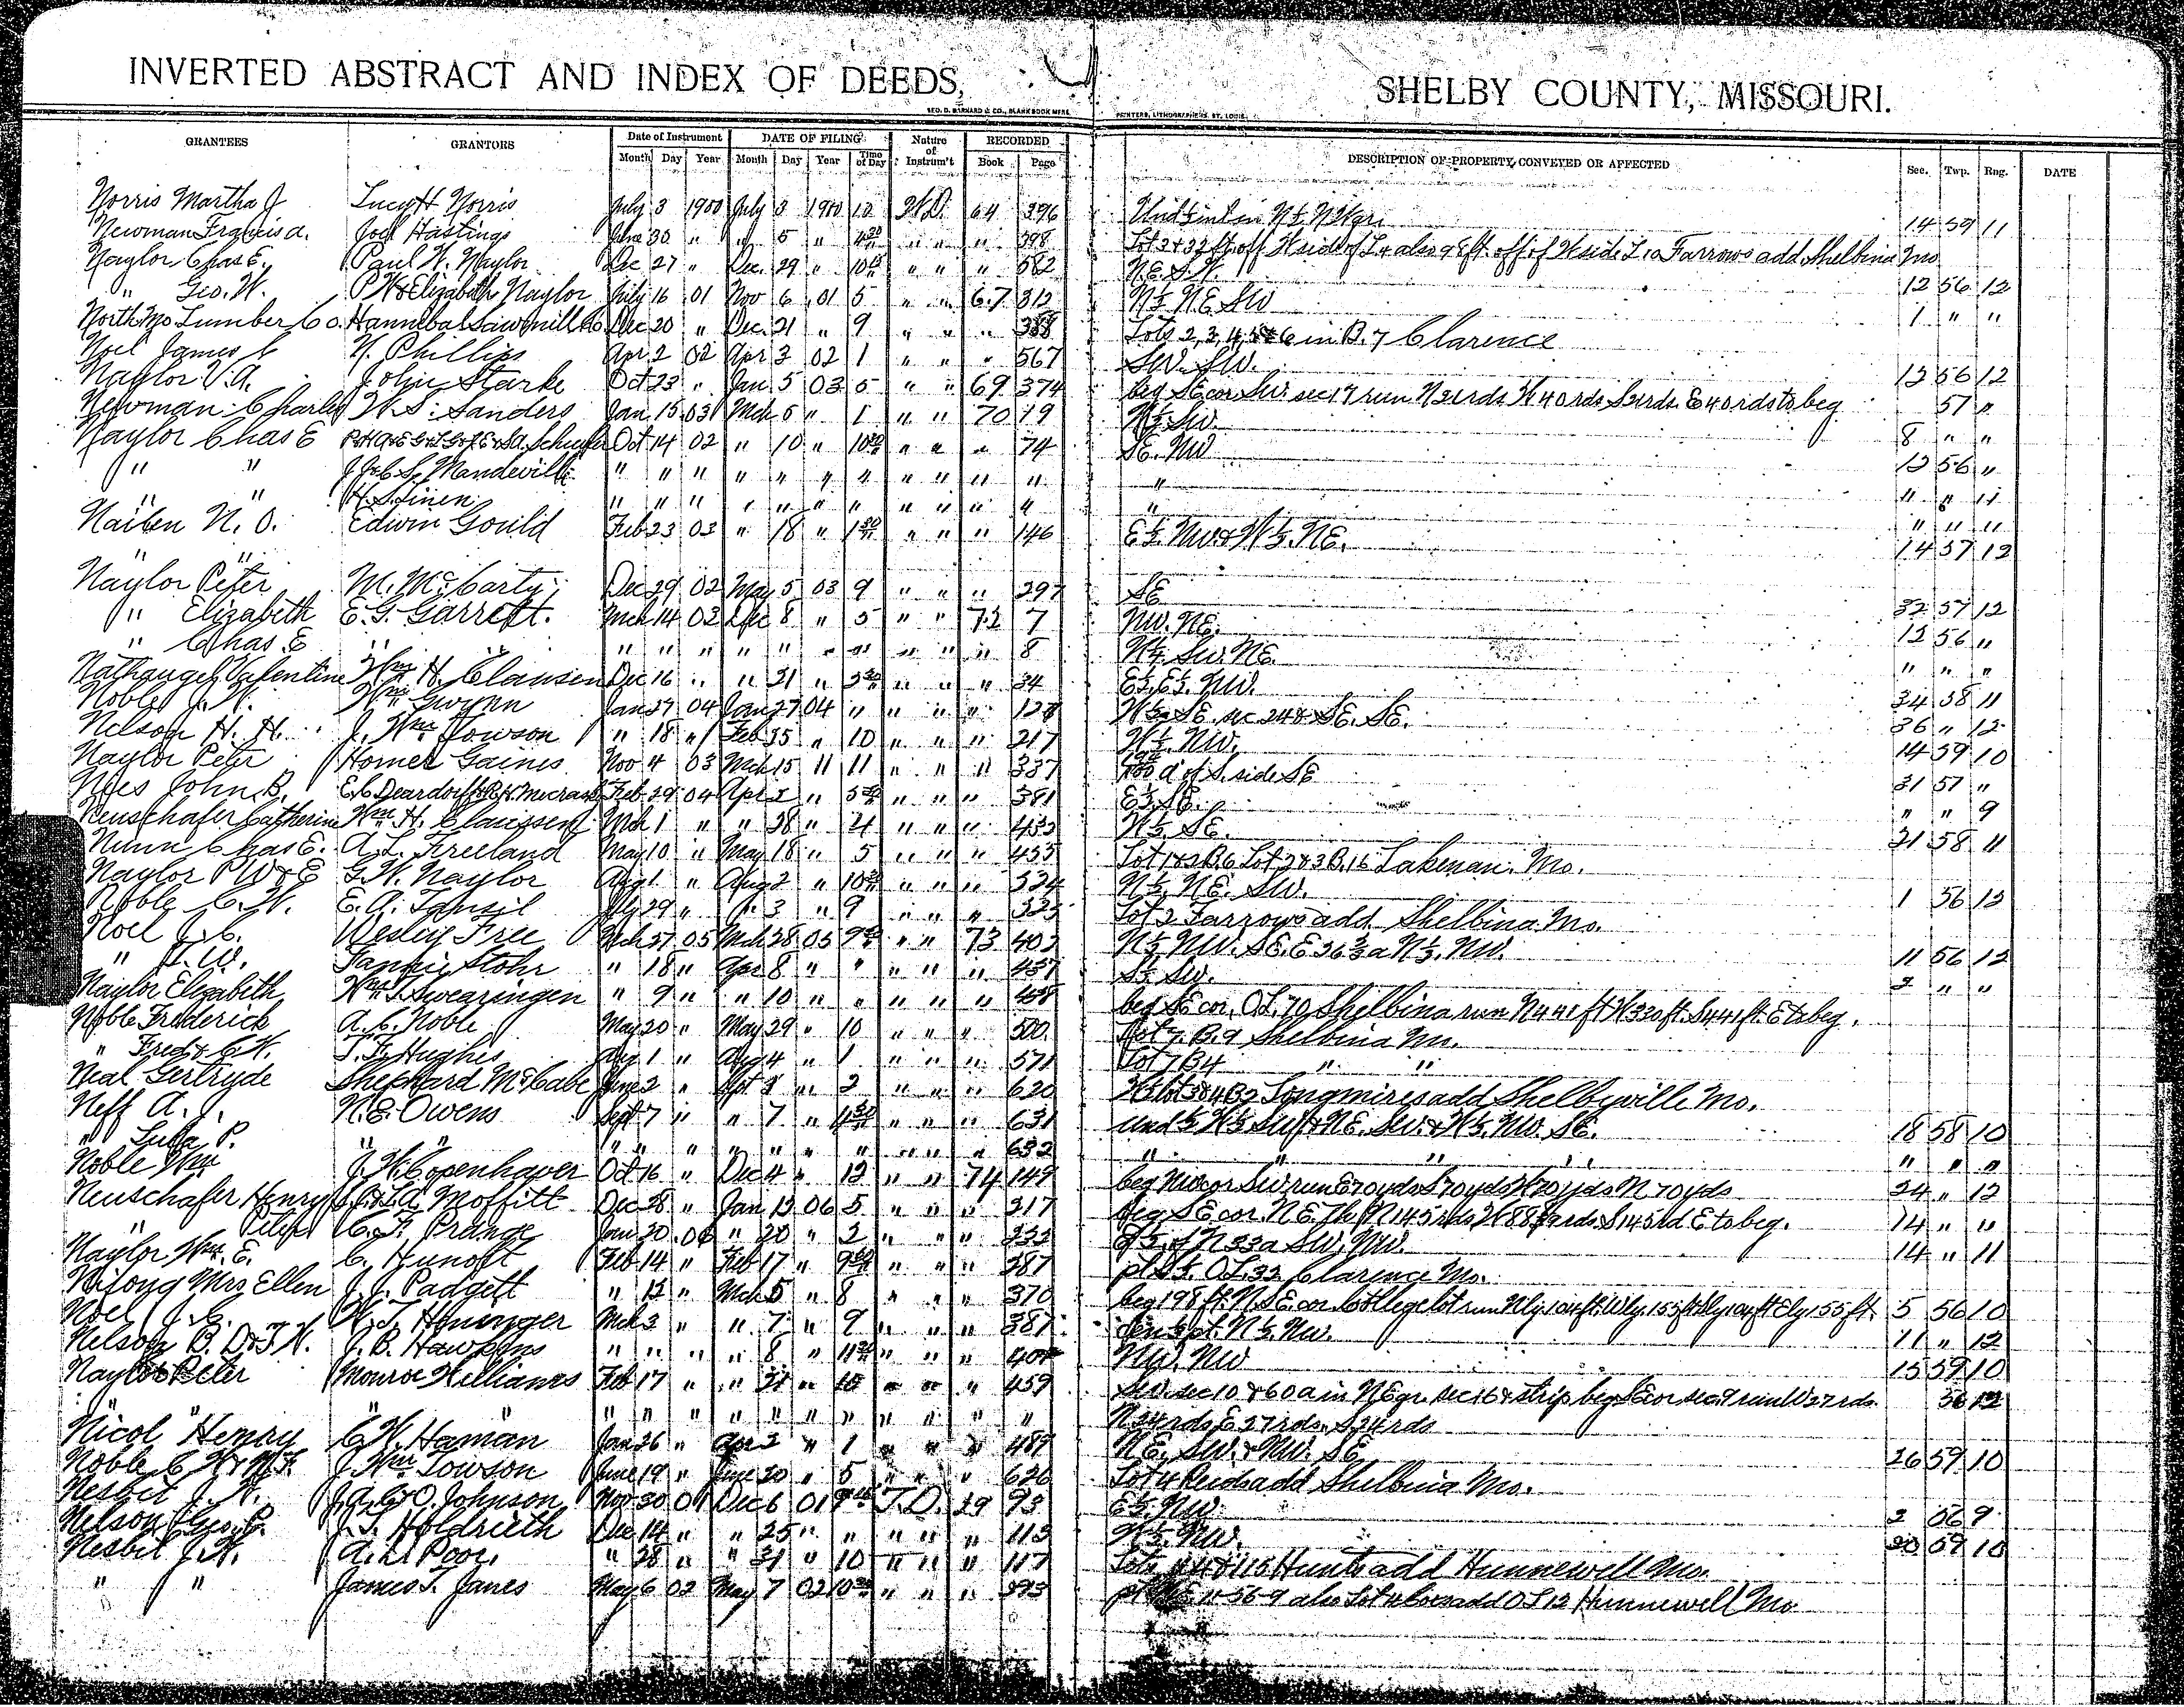 INVERTED ABSTRACT AND INDEX OF DEEDS, SHELBY COUNTY, MISSOURI.
GEO. D. BARNARD & CO., BLANK BOOK MFRS. PRINTERS, LITHOGRAPHERS, ST. LOUIS.
GRANTEES GRANTORS Date of Instrument DATE OF FILING Nature of Instrum't RECORDED DESCRIPTION OF PROPERTY CONVEYED OR AFFECTED Sec. Twp. Rng. DATE
Month Day Year Month Day Year Time of Day Book Page
Norris Martha J Lucy H Norris July 3 1900 July 3 1900 10 W.D. 64 396 14 59 11
Newman Francis A. Joel Hastings June 30 " " 5 " 4 30 " " " 398 Farrows add. Shelbina Mo
Naylor Chas E. Paul W. Naylor Dec 27 " Dec. 29 " " " " 582 N.E. S.W. 12 56 12
" Geo. W. P W & Elizabeth Naylor July 16 01 Nov 6 01 5 " " 67 312 N½ N.E. SW 1 " "
North Mo Lumber Co. Hannibal Sawmill Co Dec 20 " Dec. 21 " 9 " " " 388 Lots 2, 3, 4, 5 & 6 in B. 7 Clarence
Noel James C N. Phillips Apr 2 02 Apr 3 02 1 " " " 567 SW. SW. 12 56 12
Naylor V. A. John Starke Oct 23 " Jan 5 03 5 " " 69 374 beg SE cor SW. sec 17 run N 21 rds W 40 rds S 21 rds. E 40 rds to beg 57 "
Newman Charles W. S. Sanders Jan. 15 03 Mch 5 " 1 " " 70 19 N½ SW. 8 " "
Naylor Chas E Oct 14 02 " 10 " 10 30 " " " 74 SE. NW 12 56 "
" " J J & C S. Mandeville " " " " " " " " " " " " " " "
" " H. S. Linen " " " " " " " " " " " " " " "
Nailen N. O. Edwin Gould Feb 23 03 " 18 " 1 30 " " " 146 E½ NW. & W½ NE. 14 57 12
" "
Naylor Peter M. McCarty Dec 29 02 May 5 03 9 " " " 297 SE 32 57 12
" Elizabeth E. G. Garrett. Mch 14 03 Dec 8 " 5 " " 72 7 NW. NE. 12 56 "
" Chas. E " " " " " " " " " " " 8 N½ SW. NE. " " "
Nathangel Valentine Wm H. Clausen Dec 16 " " 21 " " " " 34 E½ E½ NW. 34 58 11
Noble J. W. Wm Gwynn Jan 27 04 Jan 27 04 " " " " 128 W½ SE. sec 24 & SE. SE. 36 " 12
Nelson H. H. J. Wm Towson " 18 " Feb 25 " 10 " " " 217 W½ NW. 14 59 10
Naylor Peter Homer Gaines Nov 4 03 Mch 15 " 11 " " " 337 a of S. side SE 31 57 "
Nies John B. Feb 29 04 Apr 2 " " " " 381 E½ SE. " " 9
Neuschafer Catherine Wm H. Claussen Mch 1 " " 28 " 4 " " " 433 W½ SE. 21 58 11
Nunn Chas E. A. L. Freeland May 10 " May 18 " 5 " " " 455 Lot 1 & 2 B. 6 Lot 2 & 3 B. 16 Lakenan. Mo.
Naylor P W & E G. W. Naylor Aug 1 " Aug 2 " " " " 524 N½ NE. SW. 1 56 12
Noble C. W. E. A. Tansil July 29 " " 3 " 9 " " " 525 Lot 2 Farrows add Shelbina Mo.
Noel J. C. Wesley Free Mch 27 05 Mch 28 05 " " 73 402 N½ NW. SE. E 26⅔ a N½ NW. 11 56 12
" D. W. Fannie Stohr " 18 " Apr 8 " " " " " 457 S½ SW. 2 " "
Naylor Elizabeth Wm T. Swearingen " 9 " " 10 " " " " " 458 beg SE cor. O.L. 70 Shelbina run N 441 ft W 330 ft. S 441 ft. E to beg.
Noble Frederick A. C. Noble May 20 " May 29 " 10 " " " 500. Lot 7 B. 9 Shelbina Mo.
" Fred & C. W. T. F. Hughes Aug 1 " Aug 4 " 1 " " " 571 Lot 7 B 4 " "
Neal Gertryde Shephard McCabe June 2 " Sept 1 " 2 " " " 620 Longmires add Shelbyville Mo.
Neff A. J. N. E. Owens Sept 7 " " 7 " 4 30 " " " 631 und ½ W½ SW & NE. SW. & W½ NW. SE. 18 58 10
" Lulla P. " " " " " " " " " " " " 632 " " " " " " "
Noble Wm J. W. Copenhaver Oct 16 " Dec 4 " 12 " " 74 149 beg NW cor SW run E 70 yds S 70 yds W 70 yds N 70 yds 24 " 12
Neuschafer Henry Moffitt Dec 28 " Jan 13 06 5 " " " 217 beg SE cor. N E. Th N 145 rds W 88 rds. S 145 rd E to beg. 14 " "
" C. F. Prange Jan 20 06 " 20 " 2 " " " 232 N 33 a SW. NW. 14 " 11
Naylor Wm. E. C. Hunolt Feb 14 " Feb 17 " " " " 287 O.L. 32 Clarence Mo.
Nifong Mrs Ellen J. J. Padgett " 12 " Mch 5 " 8 " " " 370 beg 198 ft. N. SE cor College lot run Nly 104 ft. Wly. 155 ft Sly 104 ft Ely 155 ft. 5 56 10
Noel J. C. W. T. Heninger Mch 3 " " 7 " 9 " " " 387 N½ NW. 11 " 12
Nelson B. D & T. N. J. B. Hawkins " " " " 8 " " " " 404 NW. NW 15 59 10
Naylor Peter Monroe Williams Feb 17 " " 21 " 10 " " " 459 SW. sec 10 & 60 a in NE qr. sec 16 & strip beg SE cor sec 9 run W 27 rds. 56 12
" " " " " " " " " " " " " " N 24 rds E 27 rds. S 24 rds
Nicol Henry C. W. Haman Jan 26 " Apr 2 " 1 " " " 489 NE. SW. & NW. SE 26 59 10
Noble C W & J. Wm Towson June 19 " June 20 " 5 " " " 626 Lot 4 Reids add Shelbina Mo.
Nesbit J. W. Johnson Nov 30 01 Dec 6 01 T. D. 29 93 E½ NW. 2 56 9
Nelson Geo. P. J. S. Holdrieth Dec 14 " " 25 " " " " " 113 W½ NW. 20 59 10
Nesbit J. W. A. L. Poor. " 28 " " 31 " 10 " " " 117 Lots 114 & 115 Hunts add Hunnewell Mo.
" " James T. Janes May 6 02 May 7 02 " " " 293 11-56-9 also Lot 4 add O L 12 Hunnewell Mo